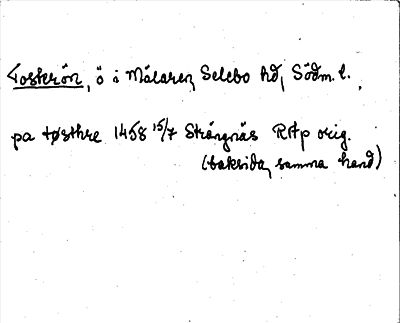 Tosterön, ö i Mälaren, Selebo hd, Södm. l.
pa tøsthre 1458 15/7 Strängnäs RAp orig.
(baksida, samma hand)